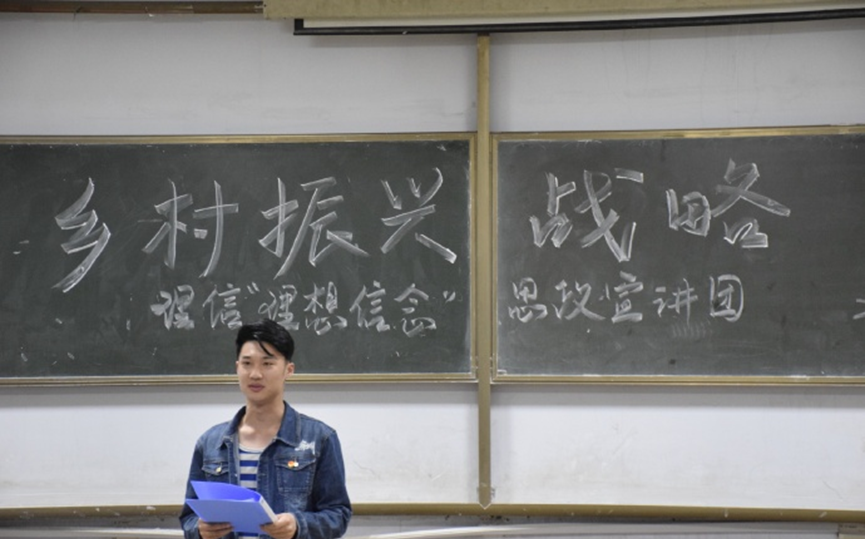 乡村振兴 战略
理信“理想信念”思政宣讲团